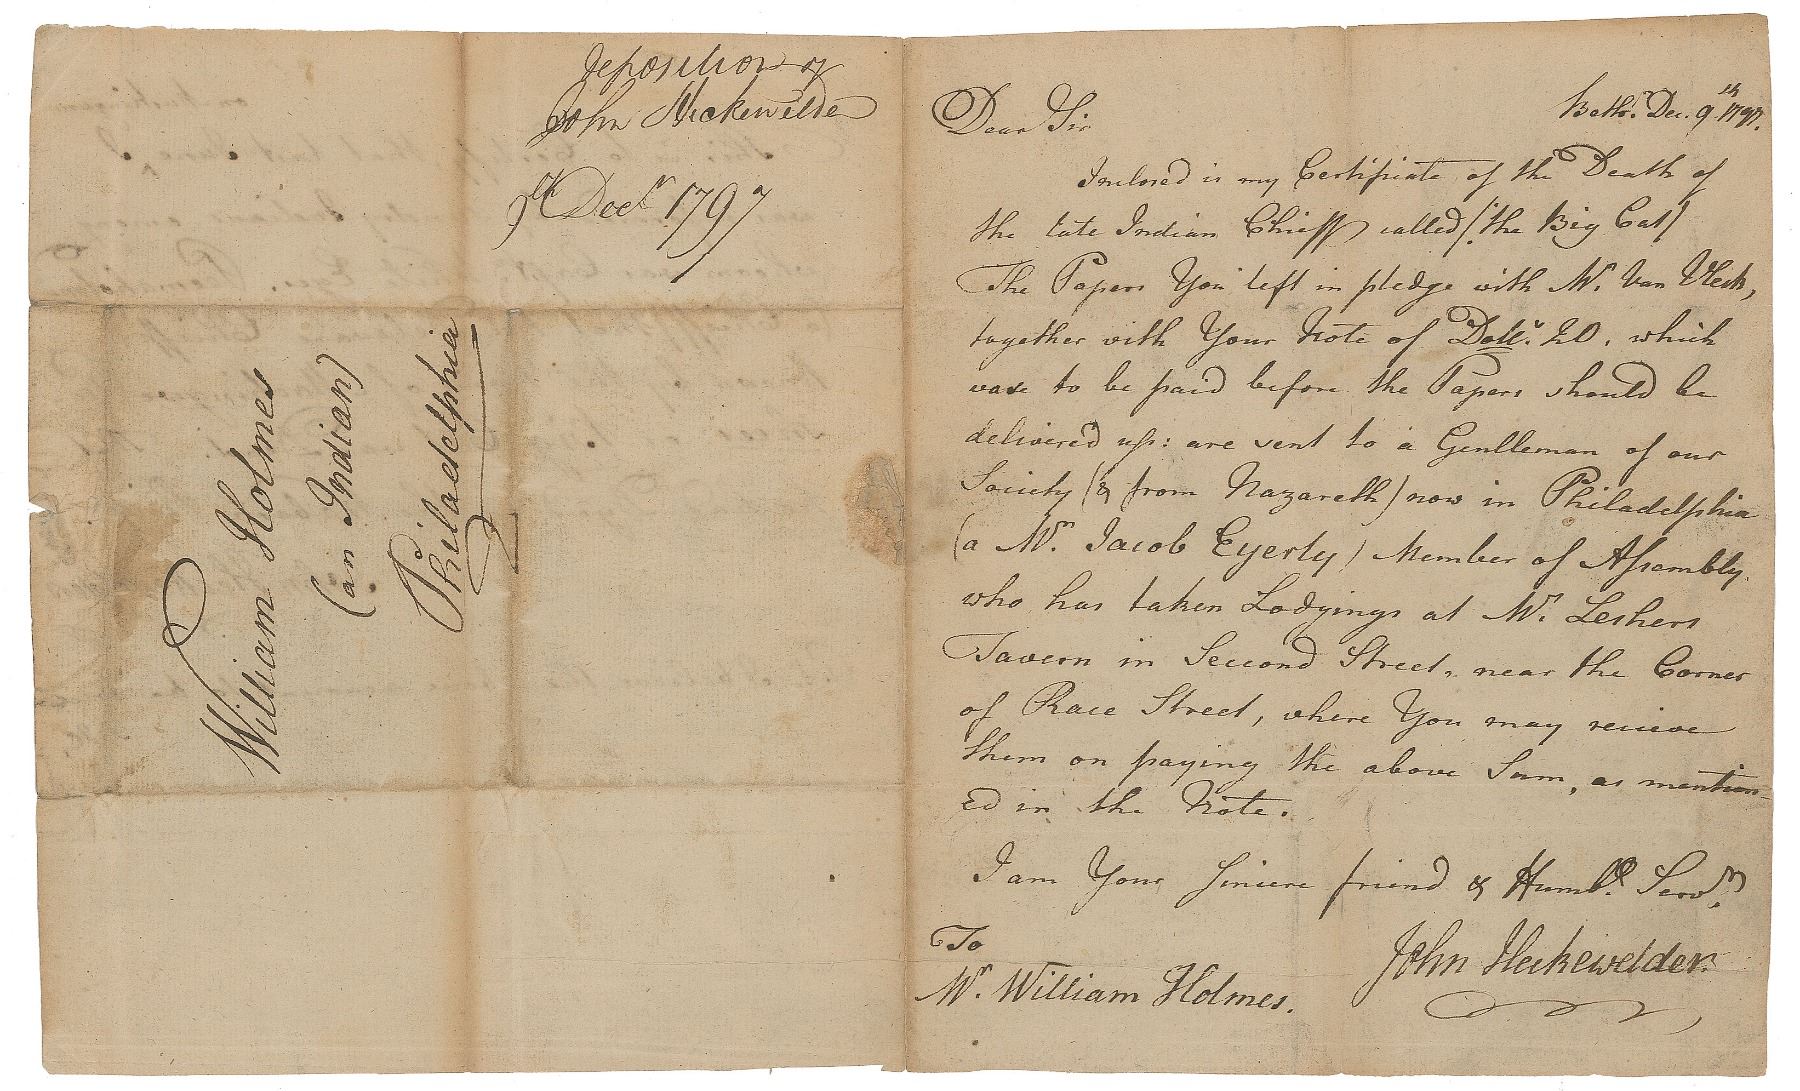 Deposition of
John Heckewelder
9th Decr 1797
William Holmes
(an Indian)
Philadelphia
Bethm. Dec. 9th 1797.
Dear Sir
Inclosed is my Certificate of the Death of
the late Indian Chieff called (the Big Cat)
The Papers You left in pledge with Mr. Van Vleck,
together with Your Note of Dolls. 20. which
wase to be paid before the Papers should be
delivered up: are sent to a Gentleman of our
Society (& from Nazareth) now in Philadelphia
(a Mr. Jacob Eyerly) Member of Assembly.
who has taken Lodgings at Mr. Leshers
Tavern in Second Street, near the Corner
of Race Street, where You may recieve
them on paying the above Sum, as mention-
ed in the Note.
I am Your sincere friend & Humble. Servt.
John Heckewelder.
To
Mr. William Holmes.